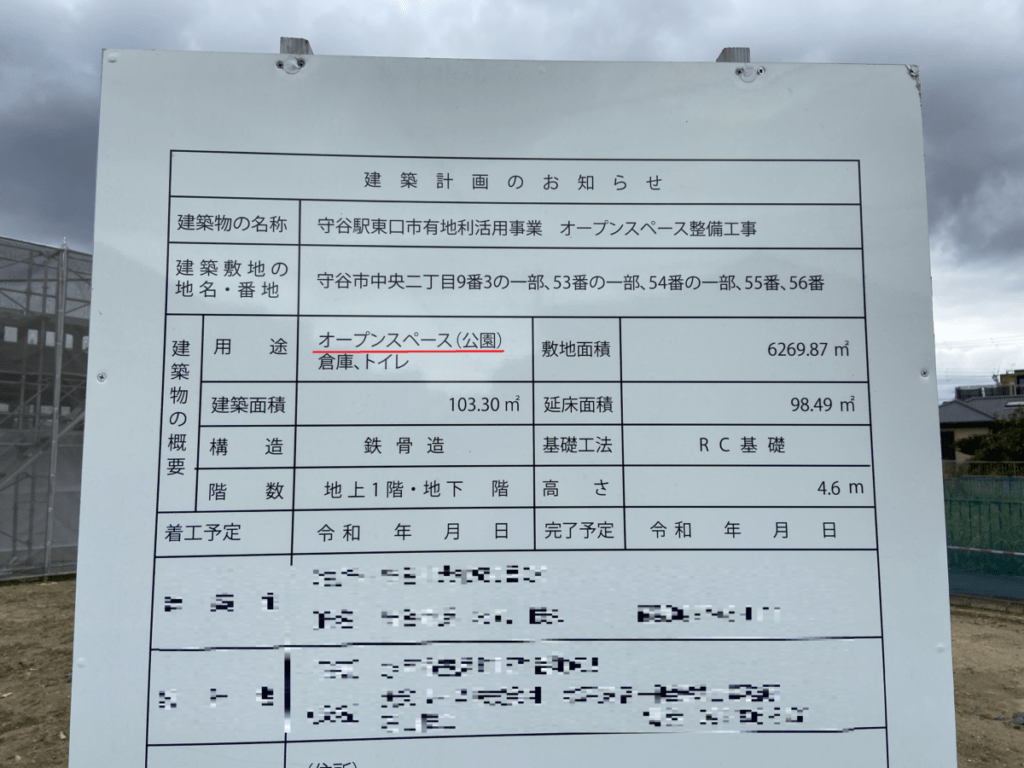 建築計画のお知らせ
建築物の名称 守谷駅東口市有地利活用事業 オープンスペース整備工事
建築敷地の
地名・番地 守谷市中央二丁目9番3の一部、53番の一部、54番の一部、55番、56番
建築物の概要
用途 オープンスペース(公園)
倉庫、トイレ
敷地面積 6269.87㎡
建築面積 103.30㎡ 延床面積 98.49㎡
構造 鉄骨造 基礎工法 RC基礎
階数 地上1階・地下 階 高さ 4.6m
着工予定 令和 年 月 日 完了予定 令和 年 月 日
(住所)